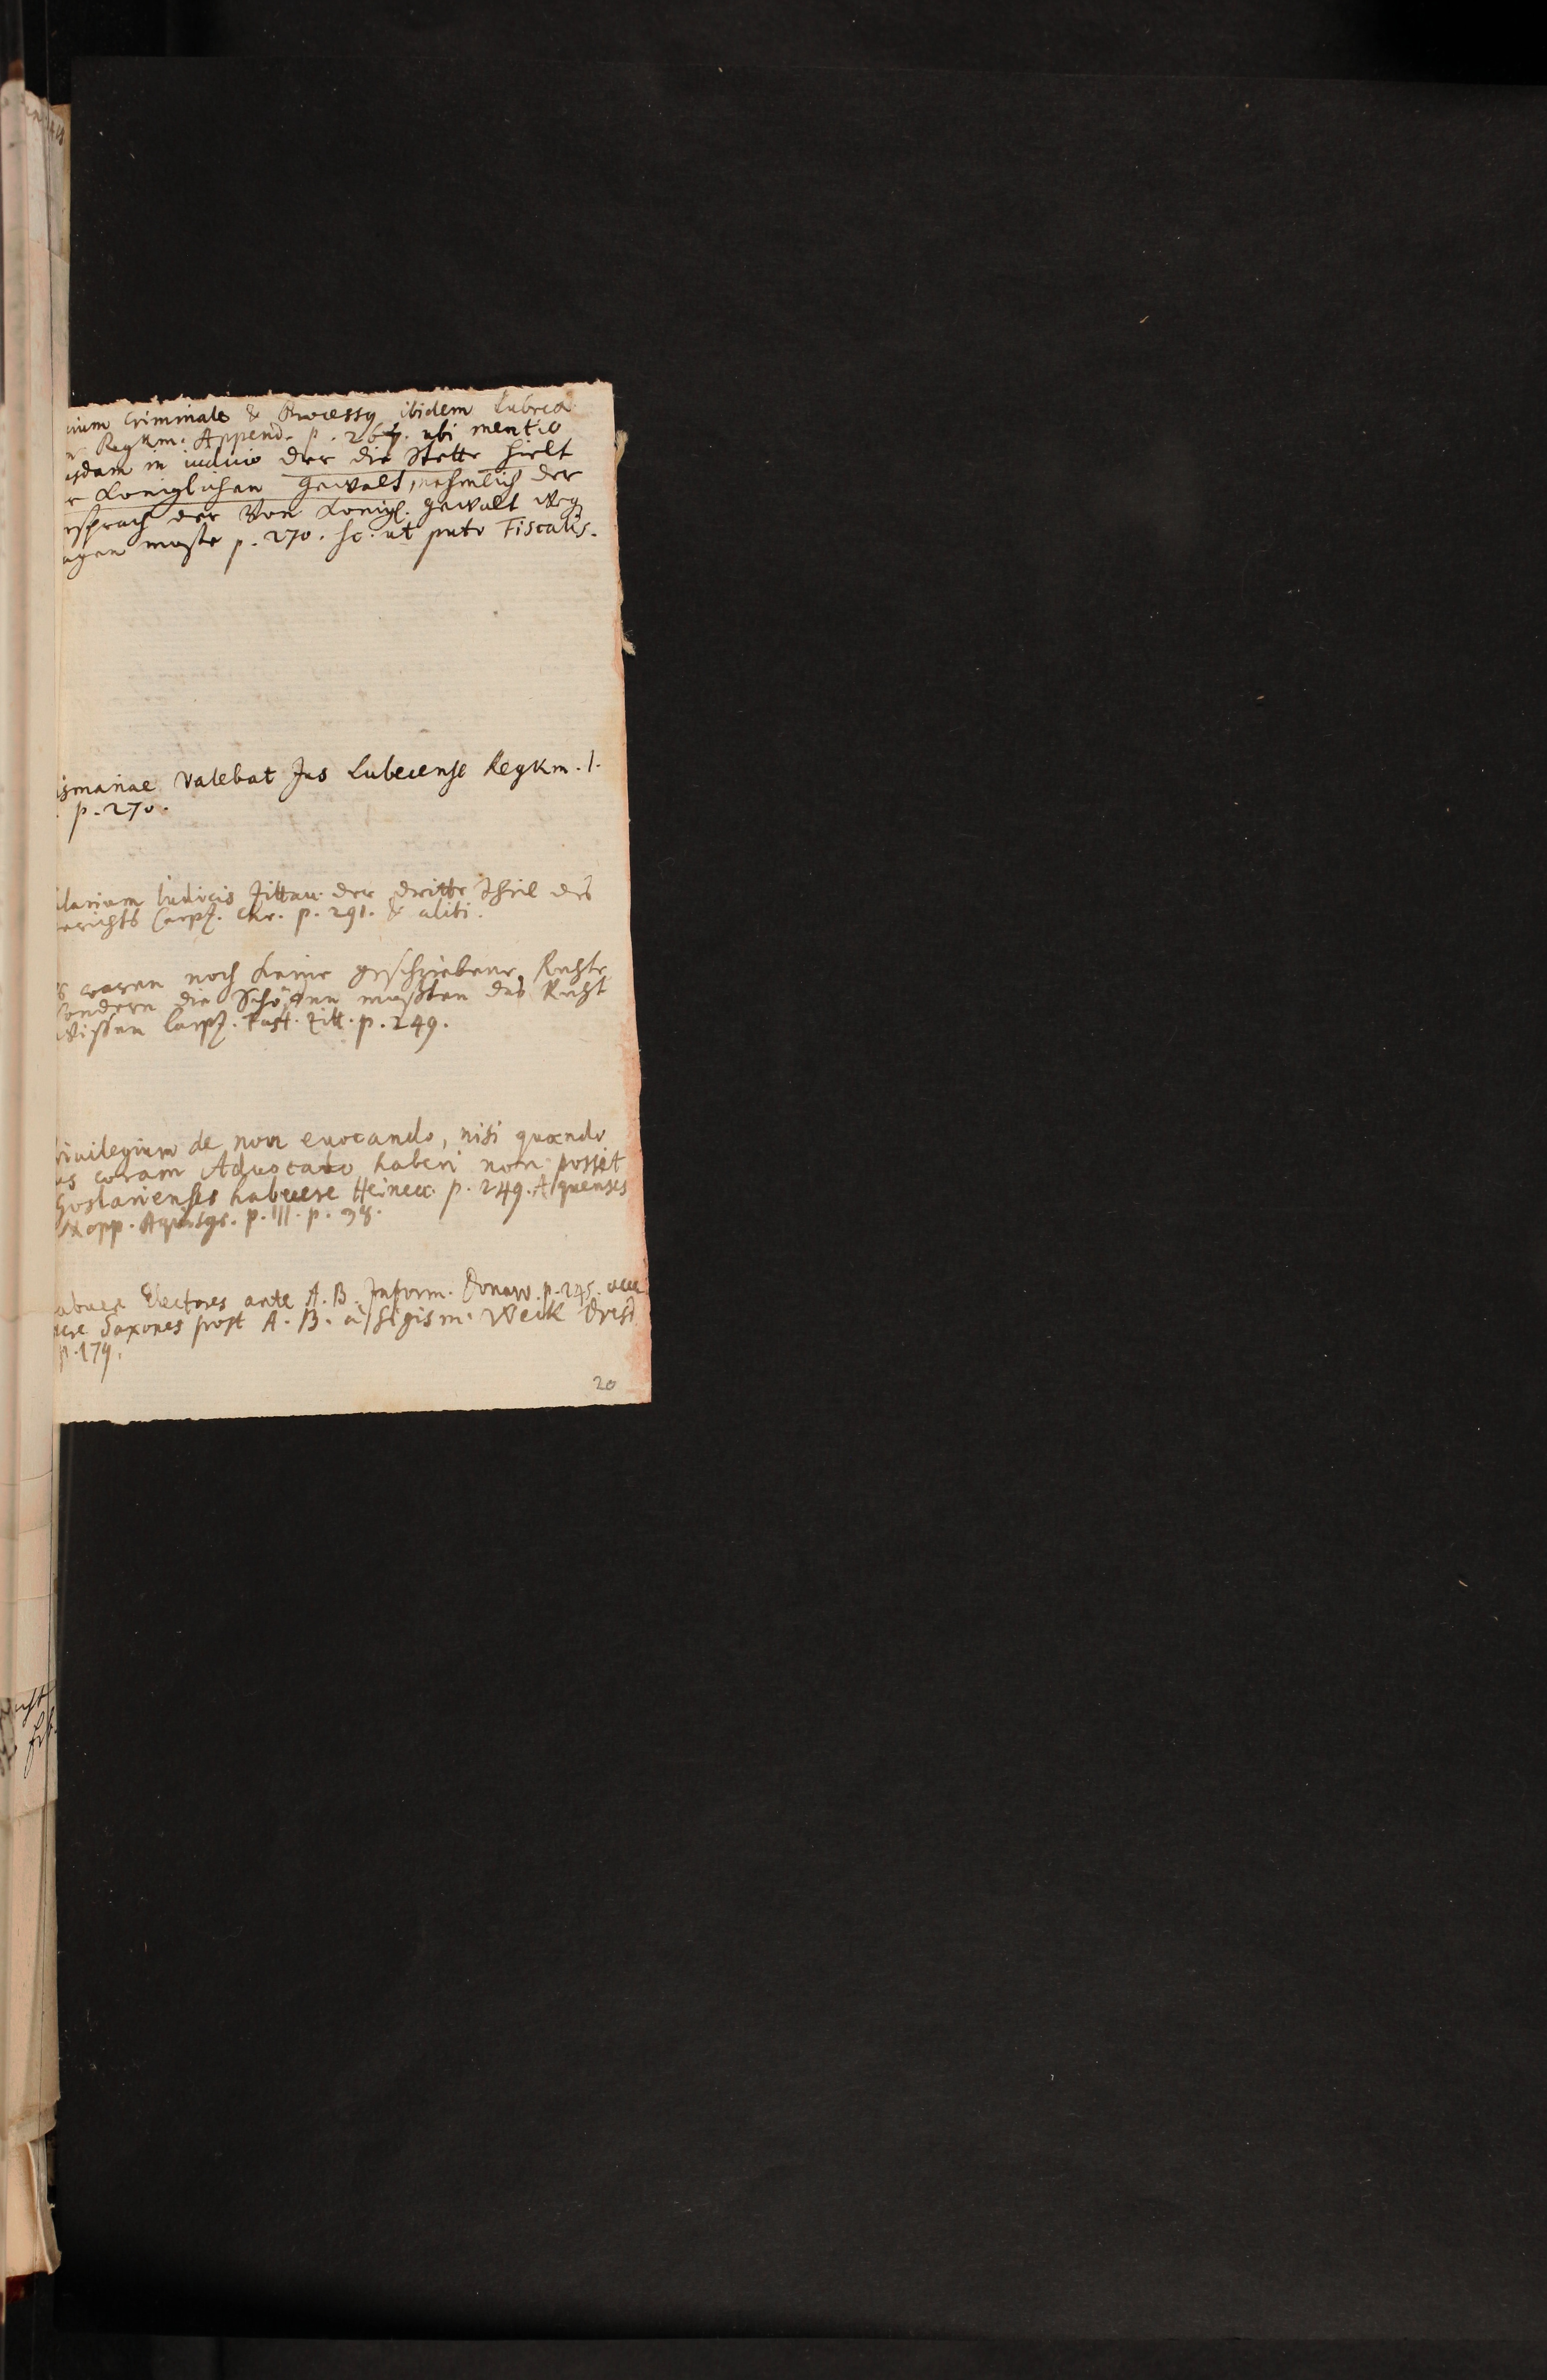 cium Criminale & Processy ibidem Lubeca
Regkm. Append. p. 267. ubi mentio
usdam in iudicio der die Stette hielt
r Königlichen Gewalt, nehmlich der
sprach der Von Königl. Gewalt weg
agen muste p. 270. sc. ut puto Fiscalis.
ismariae valebat Jus Lubecense Regkm. l.
p. 270.
alarium Iudicis Zittau. der dritte Theil des
erichts Carpz. Chr. p. 291. & alibi.
s waren noch keine geschriebene Rechte
sondern die Schöppen musten das Recht
wissen Carpz. Fast. Zitt. p. 249.
rivilegium de non euocando, nisi quando
us coram Aduocato haberi non posset
Goslarienses habuere Heinecc. p. 249. Aquenses
Nopp. Aquisgr. p. III. p. 98.
abuere Electores ante A. B. Inform. Donaw. p. 245.
ere Saxones post A. B. à Sigism. Weck Dresd.
p. 179.
20